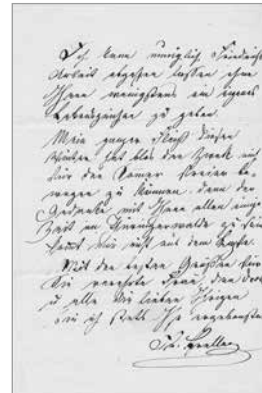 Ich kann unmöglich Friedrichs
Arbeit abgehen lassen ohne
Ihnen wenigstens ein
Lebenszeichen zu geben.
Mein ganzer Fleiß diesen
Winter hat blos den Zweck mich
für den Sommer freier be-
wegen zu können denn der
Gedanke mit Ihnen allen einige
Zeit im Thüringerwalde zu sein
kommt mir nicht aus dem Kopfe.
Mit den besten Grüßen für
Sie verehrte Frau, den
u alle die lieben Ihrigen
bin ich stets Ihr ergebenster
Fr. Preller